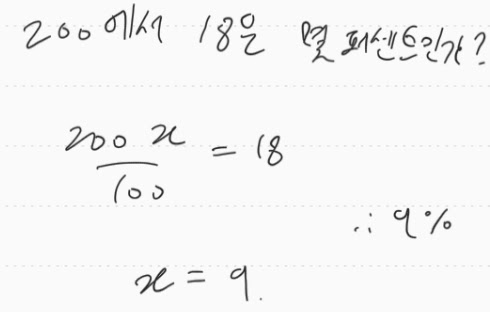 200에서 18은 몇 퍼센트인가?
200 x
―――― = 18
100
∴ 9%
x = 9.